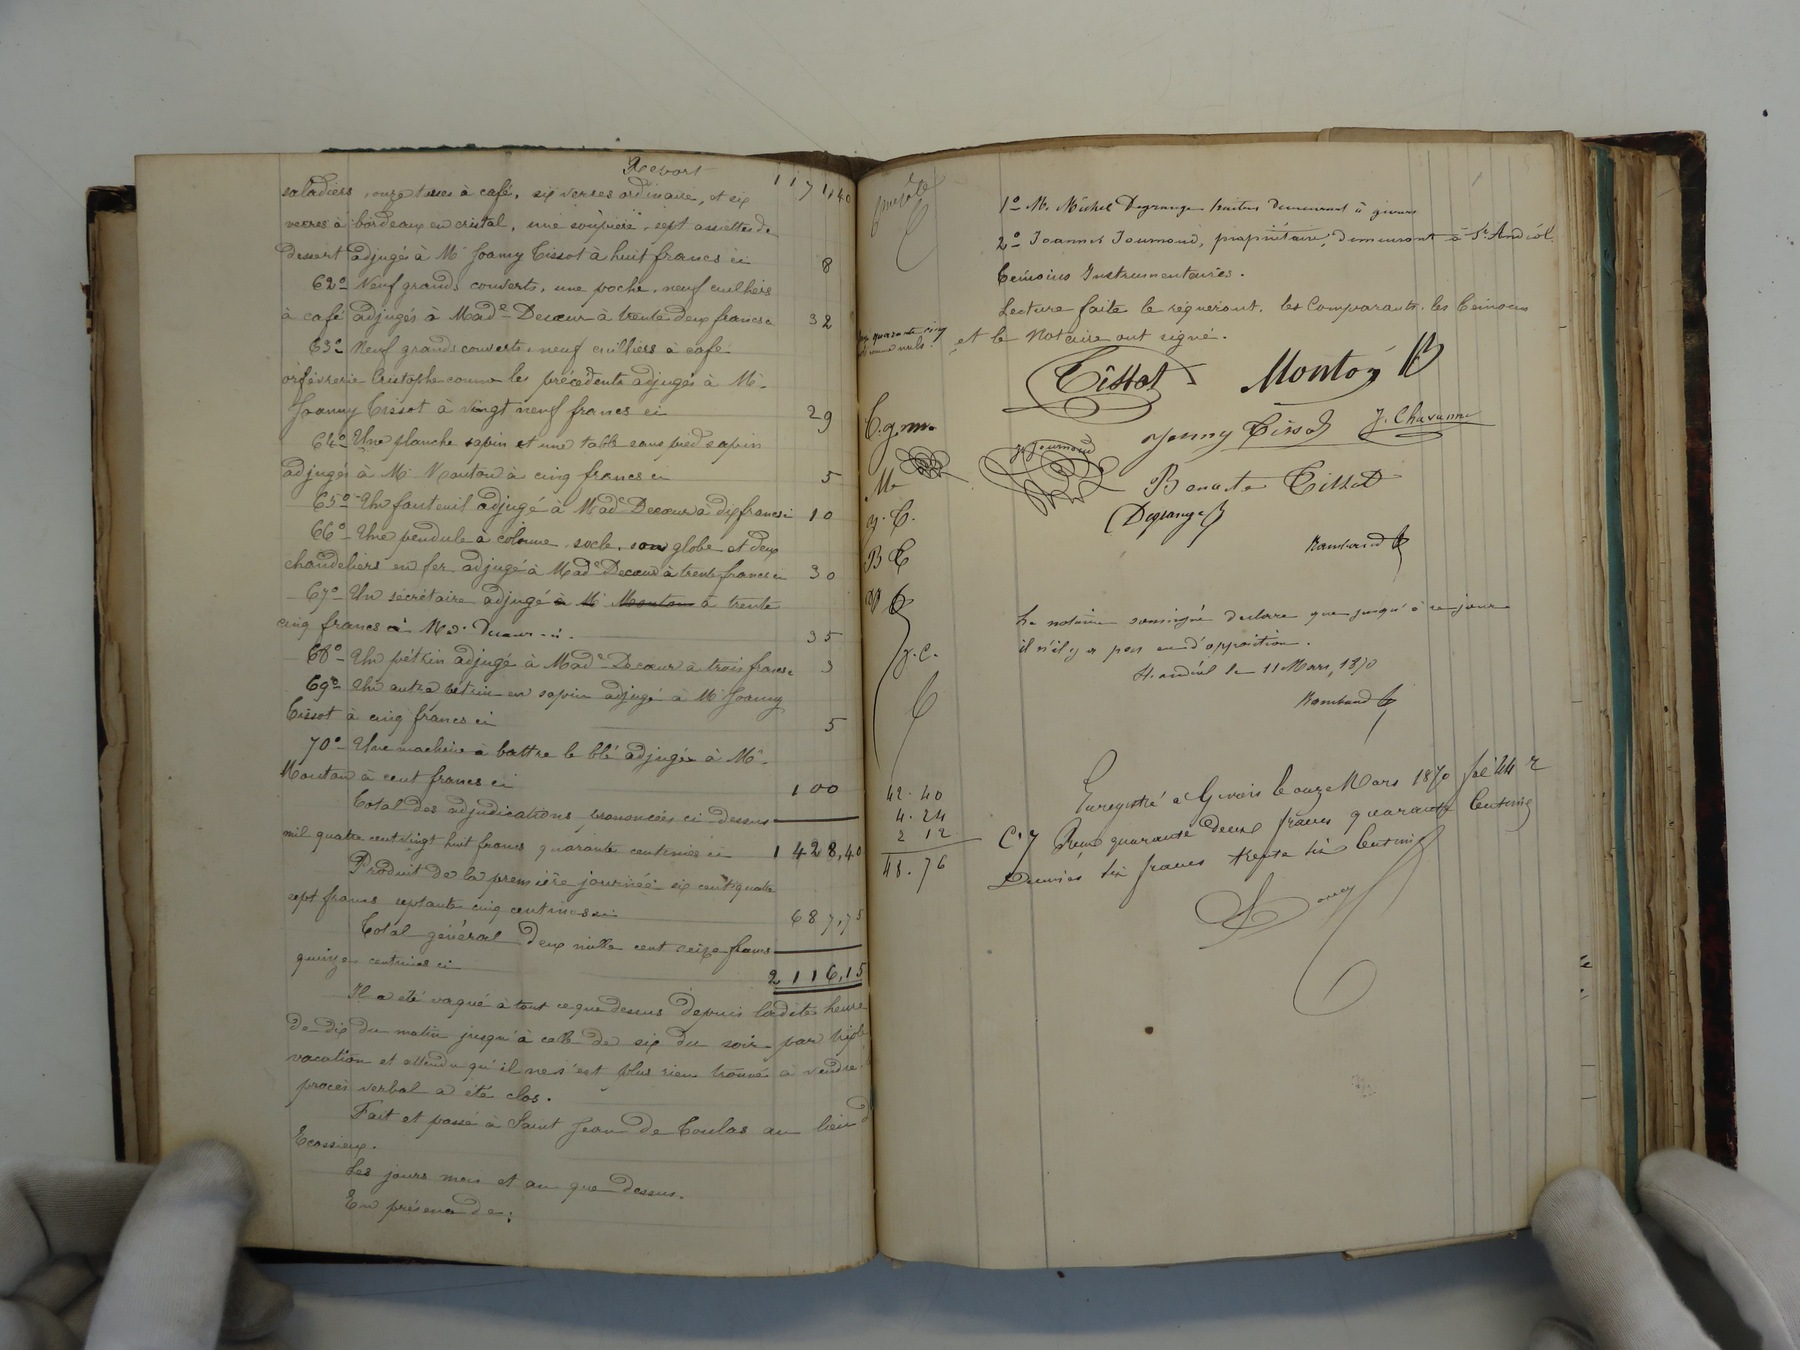 Report 1171,40
saladiers, onze tasses à café, six verres ordinaire, et six
verres à bordeaux en cristal, une soupière, sept assiettes de
dessert adjugés à Mr Joanny Tissot à huit francs ci 8
62º Neuf grands couverts, une poche, neuf cuilliers
à café adjugés à Made Decœur à trente deux francs ci 32
63º Neuf grands couverts, neuf cuilliers à café
orfèvrerie Cristophe comme les précédents adjugés à Mr
Joanny Tissot à vingt neuf francs ci 29
64º Une planche sapin et une table sans pied sapin
adjugés à Mr Mouton à cinq francs ci 5
65º Un fauteuil adjugé à Made Decœur à dix francs ci 10
66º Une pendule à colonne, socle, son globe et deux
chandeliers en fer adjugé à Made Decœur à trente francs ci 30
67º Un secrétaire adjugé à Mr Mouton à trente
cinq francs à Md. Decœur ci. 35
68º Un pétrin adjugé à Made Decœur à trois francs ci 3
69º Un autre pétrin en sapin adjugé à Mr Joanny
Tissot à cinq francs ci 5
70º Une machine à battre le blé adjugée à Mr
Mouton à cent francs ci 100
Total des adjudications prononcées ci-dessus
mil quatre cent vingt huit francs quarante centimes ci 1428,40
Produit de la première journée six cent quatre
sept francs septante cinq centimes ci 687,75
Total général deux mille cent seize francs
quinze centimes ci 2116,15
Il a été vaqué à tout ce que dessus depuis ladite heure
de dix du matin jusqu'à celle de six du soir par triple
vacation et attendu qu'il ne s'est plus rien trouvé à vendre
procès verbal a été clos.
Fait et passé à Saint Jean de Toulas au lieu d
Ecossieux.
Les jours mois et an que dessus.
En présence de;
1º Mr Michel Degrange demeurant à givors
2º Joannes Journoud, propriétaire, demeurant à St Andéol
Témoins Instrumentaires.
Lecture faite le réquérant, les Comparants, les Témoins
et le Notaire ont signé.
quarante cinq
nuls.
Tissot Mouton
Joanny Tissot J. Chavanne
J. Journoud
Benoite Tissot
Degrange
Rambaud
M
J. T.
B T
J. C.
Le notaire soussigné déclare que jusqu'à ce jour
il n'il y a pas eu d'opposition.
St andéol le 11 Mars, 1870
Rambaud
Enregistré à Givors le onze Mars 1870 fol 44 r
C. 7 Reçu quarante deux francs quarante Centimes
Décimes six francs trente six Centimes
42.40
4.24
2 12
48.76